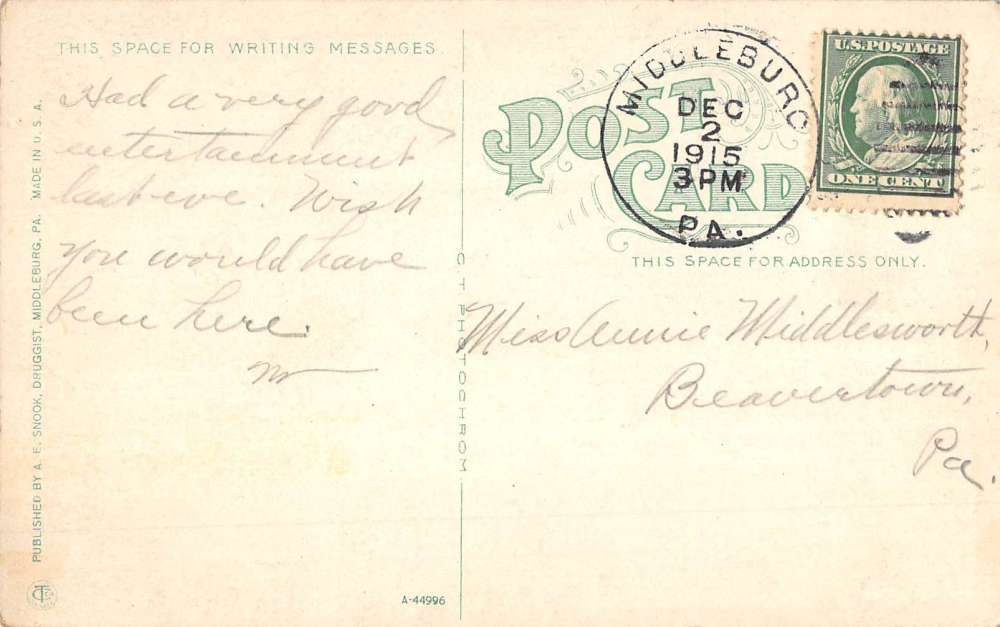 THIS SPACE FOR WRITING MESSAGES
Had a very good
entertainment
last eve. Wish
you would have
been here.
PUBLISHED BY A. E. SNOOK, DRUGGIST, MIDDLEBURG, PA. MADE IN U.S.A.
CT
A-44996
C T PHOTOCHROM
POST
CARD
MIDDLEBURG
DEC
2
1915
3 PM
PA.
U.S. POSTAGE
ONE CENT
THIS SPACE FOR ADDRESS ONLY.
Miss Annie Middlesworth,
Beavertown,
Pa.